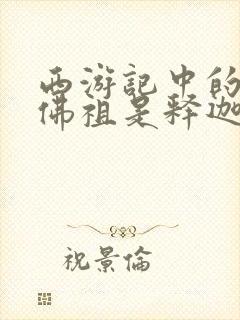 西游記中的
佛祖是释迦
祝景倫